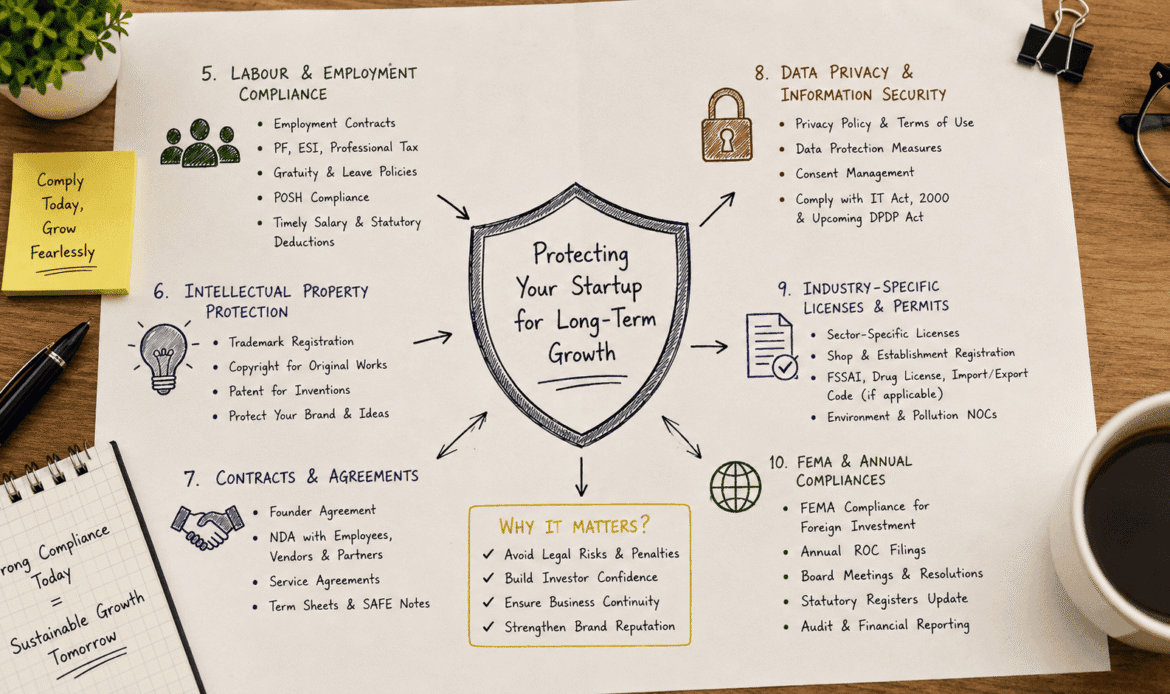 5. LABOUR & EMPLOYMENT
COMPLIANCE
• Employment Contracts
• PF, ESI, Professional Tax
• Gratuity & Leave Policies
• POSH Compliance
• Timely Salary & Statutory
Deductions
Comply
Today,
Grow
Fearlessly
6. INTELLECTUAL PROPERTY
PROTECTION
• Trademark Registration
• Copyright for Original Works
• Patent for Inventions
• Protect Your Brand & Ideas
7. CONTRACTS & AGREEMENTS
• Founder Agreement
• NDA with Employees,
Vendors & Partners
• Service Agreements
• Term Sheets & SAFE Notes
rong Compliance
Today
=
Sustainable Growth
Tomorrow
Protecting
Your Startup
for Long-Term
Growth
WHY IT MATTERS?
✓ Avoid Legal Risks & Penalties
✓ Build Investor Confidence
✓ Ensure Business Continuity
✓ Strengthen Brand Reputation
8. DATA PRIVACY &
INFORMATION SECURITY
• Privacy Policy & Terms of Use
• Data Protection Measures
• Consent Management
• Comply with IT Act, 2000
& Upcoming DPDP Act
9. INDUSTRY-SPECIFIC
LICENSES & PERMITS
• Sector-Specific Licenses
• Shop & Establishment Registration
• FSSAI, Drug License, Import/Export
Code (if applicable)
• Environment & Pollution NOCs
10. FEMA & ANNUAL
COMPLIANCES
• FEMA Compliance for
Foreign Investment
• Annual ROC Filings
• Board Meetings & Resolutions
• Statutory Registers Update
• Audit & Financial Reporting